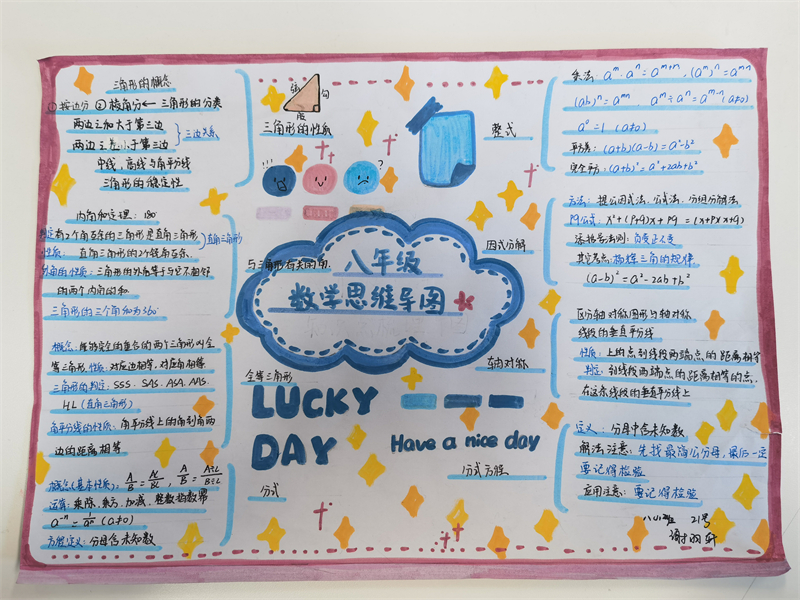 三角形的概念
①按边分 ②按角分← 三角形的分类
两边之和大于第三边
两边之差小于第三边
三边关系
中线、高线与角平分线
三角形的稳定性
内角和定理：180°
判定：有2个角互余的三角形是直角三角形
性质：直角三角形的2个锐角互余.
直角三角形
外角的性质：三角形的外角等于与它不相邻
的两个内角的和
三角形的三个角和为360°
概念：能够完全的重合的两个三角形叫全
等三角形，性质：对应边相等，对应角相等
三角形的判定：SSS、SAS、ASA、AAS、
HL（直角三角形）
角平分线的性质：角平分线上的角到角两
边的距离相等
概念(基本性质)：
运算：乘除、乘方、加减、整数指数幂
a⁻ⁿ = 1/aⁿ (a≠0)
方程定义：分母含未知数
弦
勾
股
三角形的性质
整式
因式分解
与三角形有关的角
八年级
数学思维导图
全等三角形
轴对称
LUCKY
DAY
Have a nice day
分式
分式方程
乘法：aᵐ·aⁿ=aᵐ⁺ⁿ，(aᵐ)ⁿ=aᵐⁿ
(ab)ⁿ=aᵐⁿ aᵐ÷aⁿ=aᵐ⁻ⁿ(a≠0)
a⁰=1 (a≠0)
平方差：(a+b)(a-b)=a²-b²
完全平方：(a+b)²=a²+2ab+b²
方法：提公因式法、公式法、分组分解法
PQ公式：x²+(p+q)x+pq=(x+p)(x+q)
添括号法则：负变正不变
其它考点：杨辉三角的规律
(a-b)²=a²-2ab+b²
区分轴对称图形与轴对称
线段的垂直平分线
性质：上的点到线段两端点的距离相等
判定：到线段两端点的距离相等的点，
在这条线段的垂直平分线上
定义：分母中含未知数
解法注意：先找最简公分母，最后一定
要记得检验
应用注意：要记得检验
21号